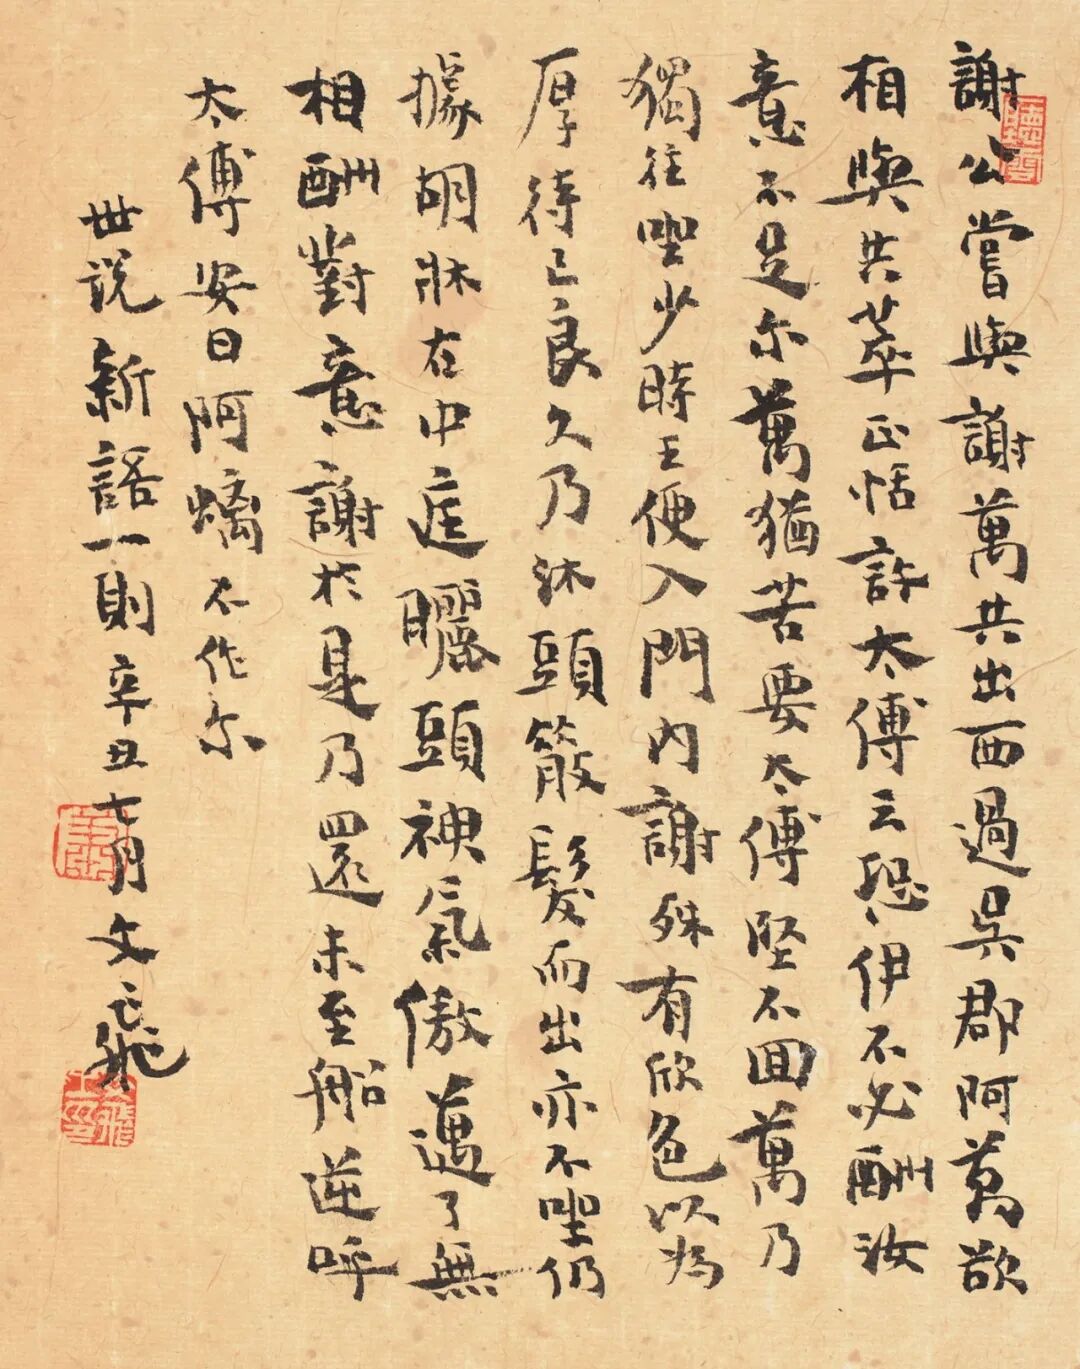 謝公嘗與謝萬共出西過吳郡阿萬欲
相與共萃王恬許太傅云恐伊不必酬汝
意不足尔萬猶苦要太傅堅不回萬乃
獨往坐少時王便入門內謝殊有欣色以為
厚待已良久乃沐頭散髮而出亦不坐仍
據胡牀在中庭曬頭神氣傲邁了無
相酬對意謝於是乃還未至船逆呼
太傅安曰阿螭不作尔
世说新語一則辛丑七月文飛